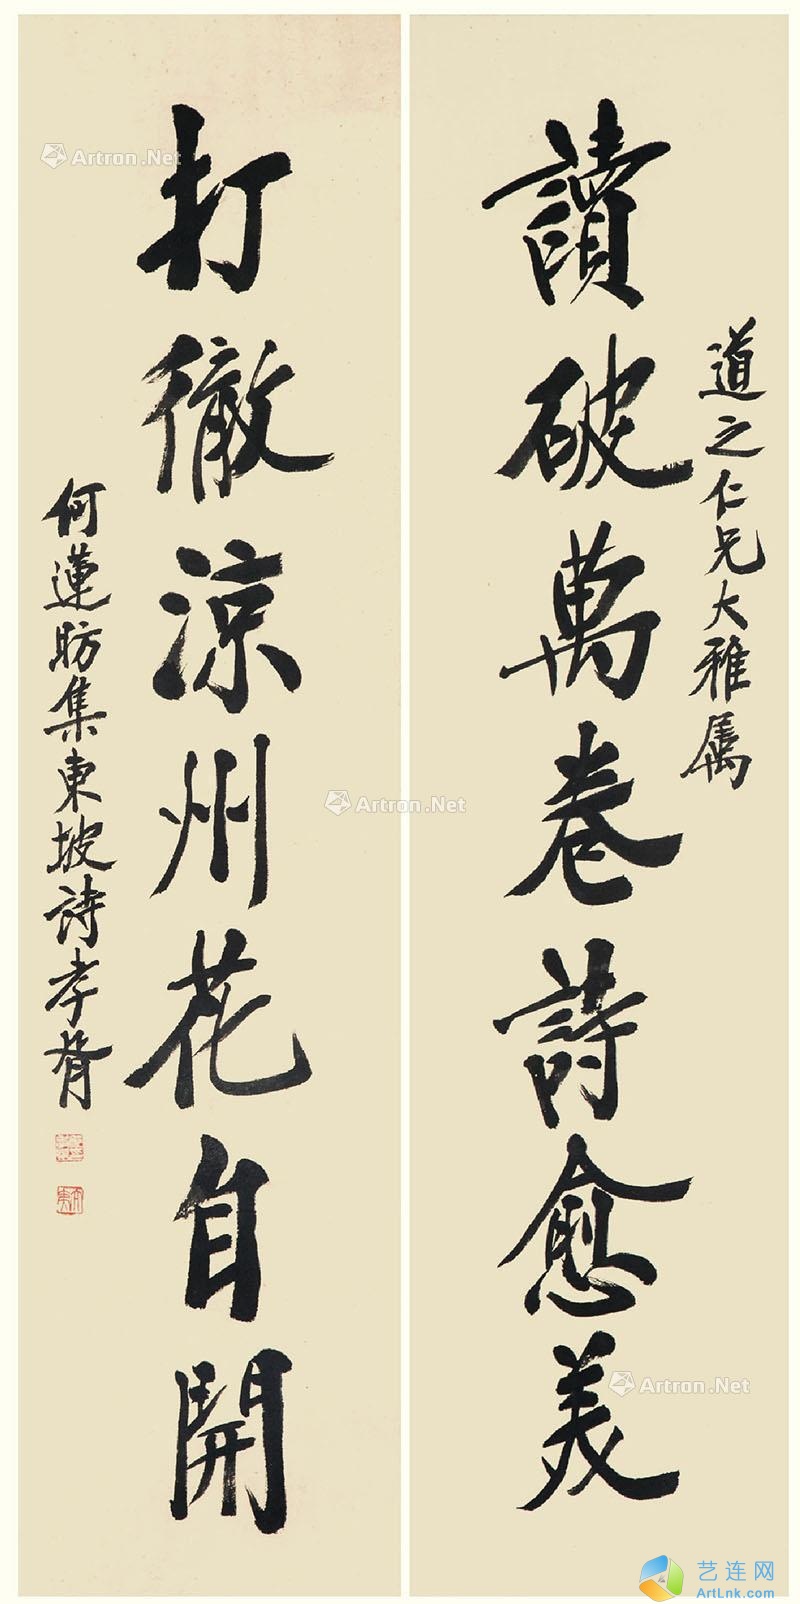 道之仁兄大雅属
讀破萬卷詩愈美
打徹涼州花自開
何蓮昉集東坡詩孝胥
Artron.Net
Artron.Net
Artron.Net
艺连网
ArtLnk.com